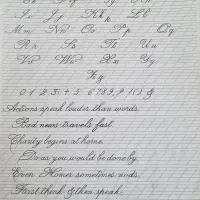 Ii Jj Kk Ll
Mm Nn Oo Pp Qq
Rr Ss Tt Uu
Vv Ww Xx Yy
Zz
0 1 2 3 4 5 6 7 8 9 ? ! ( ) &
Actions speak louder than words.
Bad news travels fast.
Charity begins at home.
Do as you would be done by.
Even Homer sometimes nods.
First think & then speak.